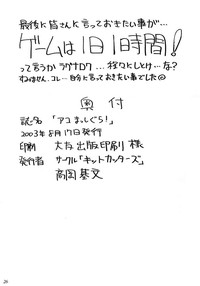 最後に皆さんに言っておきたい事が…
ゲームは1日1時間!
って言うか ラグナロク … 程々にしとけ…な?
すみません、コレ…自分に言っておきたい事でした◎
奥付
誌名 「アコまっしぐら!」
2003年8月17日発行
印刷 大友出版印刷 様
発行者 サークル「キットカッターズ」
高岡基文